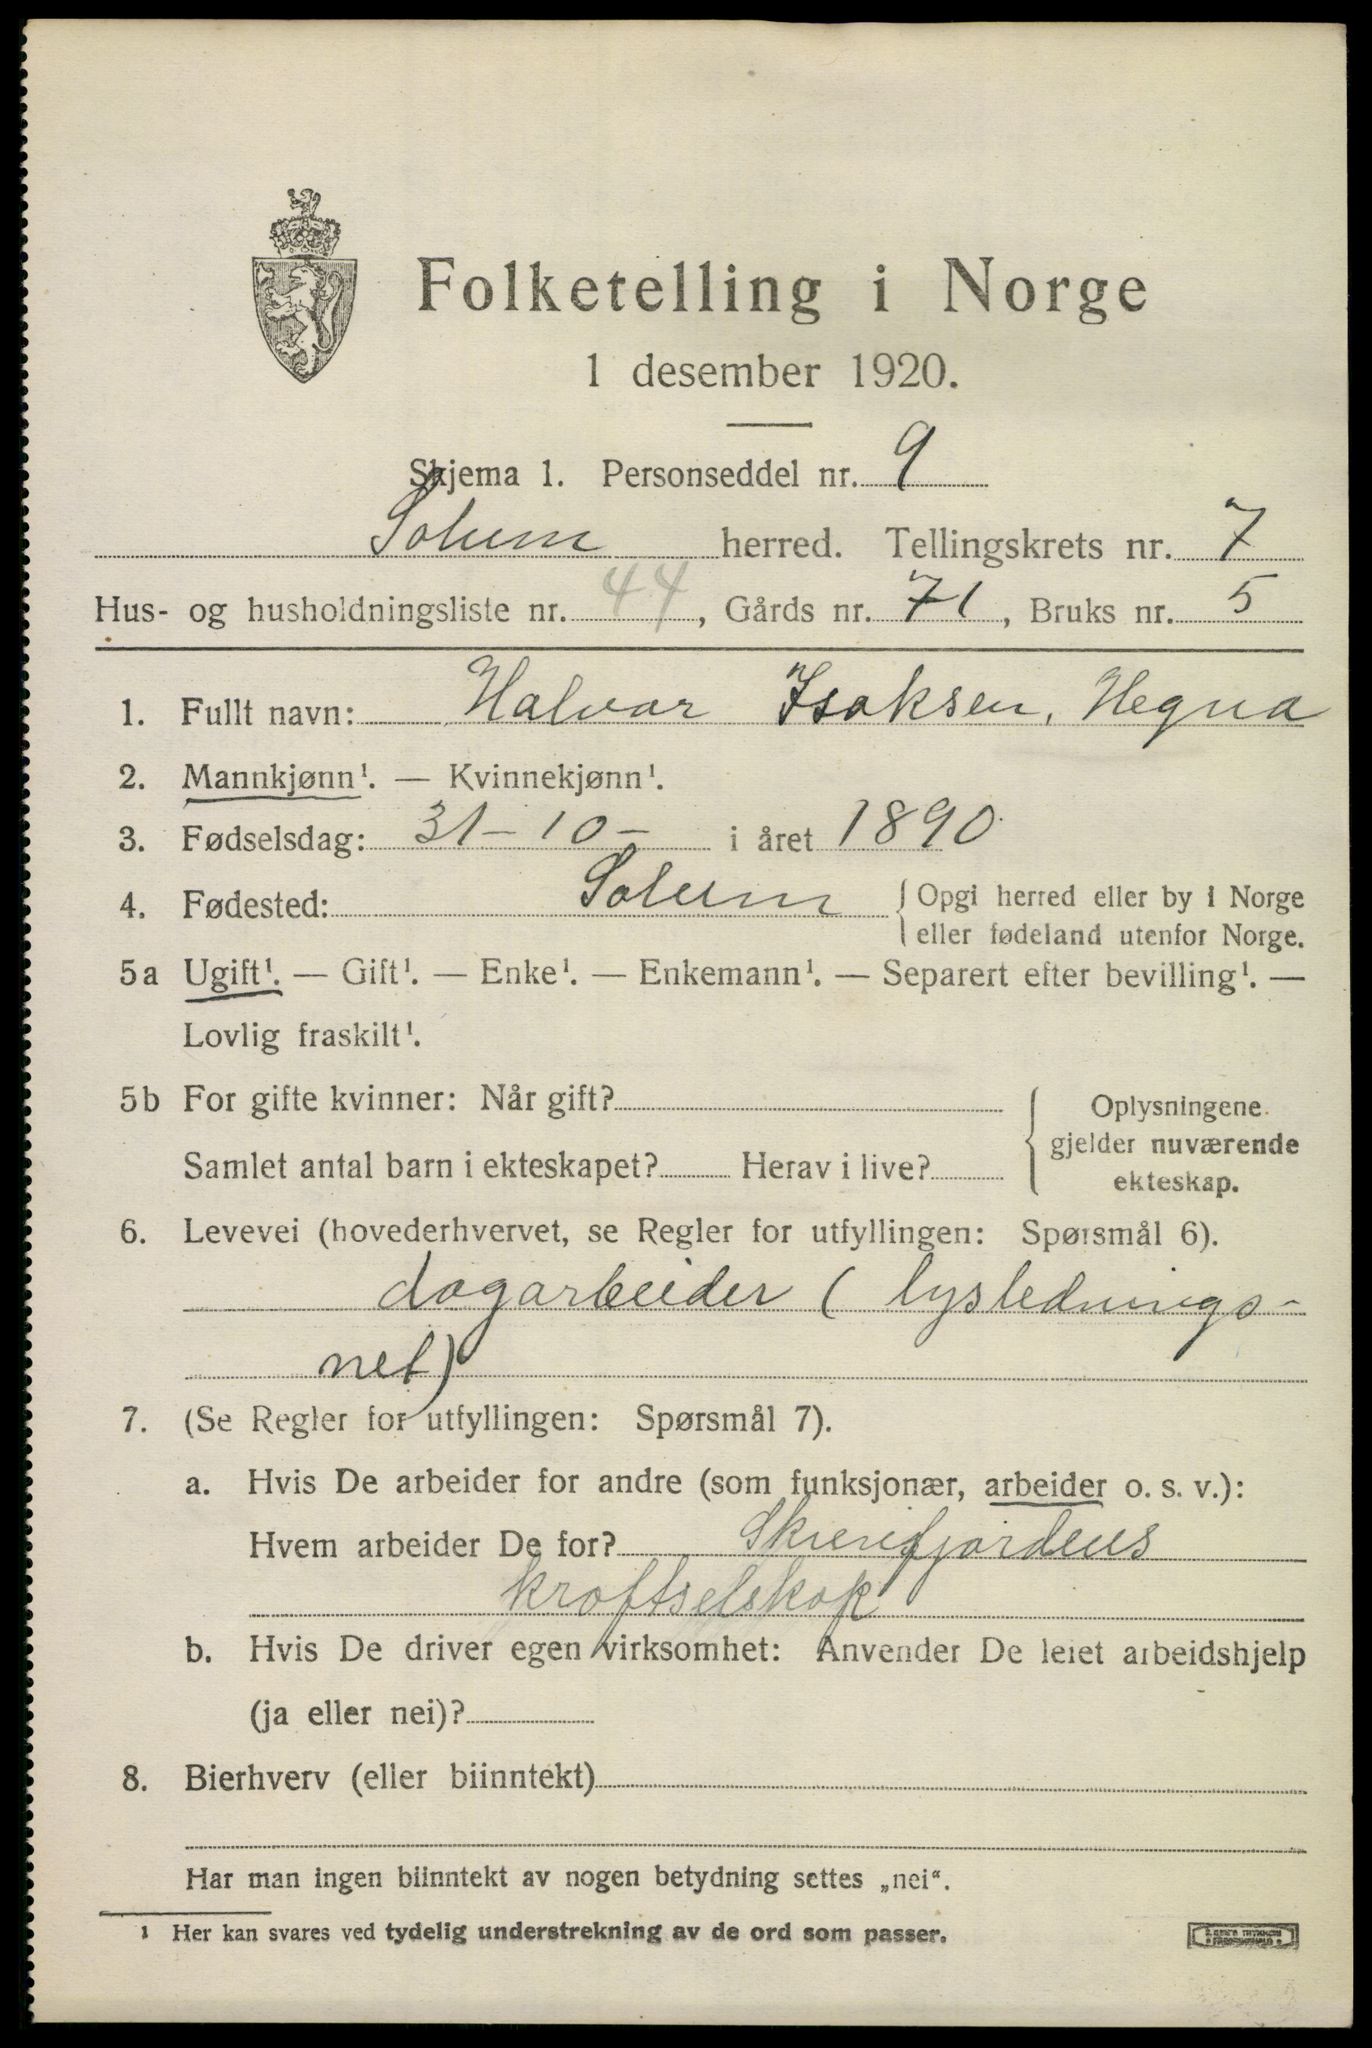 Folketelling i Norge
1 desember 1920.
Skjema 1. Personseddel nr. 9
Solum herred. Tellingskrets nr. 7
Hus- og husholdningsliste nr. 44, Gårds nr. 71, Bruks nr. 5
1. Fullt navn: Halvar Isaksen, Hegna
2. Mannkjønn¹. — Kvinnekjønn¹.
3. Fødselsdag: 31-10- i året 1890
4. Fødested: Solum { Opgi herred eller by i Norge
eller fødeland utenfor Norge.
5a Ugift¹. — Gift¹. — Enke¹. — Enkemann¹. — Separert efter bevilling¹. —
Lovlig fraskilt¹.
5b For gifte kvinner: Når gift?
Samlet antal barn i ekteskapet? Herav i live?
Oplysningene
gjelder nuværende
ekteskap.
6. Levevei (hovederhvervet, se Regler for utfyllingen: Spørsmål 6).
dagarbeider (lyslednings-
net)
7. (Se Regler for utfyllingen: Spørsmål 7).
a. Hvis De arbeider for andre (som funksjonær, arbeider o. s. v.):
Hvem arbeider De for? Skiensfjordens
kraftselskap
b. Hvis De driver egen virksomhet: Anvender De leiet arbeidshjelp
(ja eller nei)?
8. Bierhverv (eller biinntekt)
Har man ingen biinntekt av nogen betydning settes „nei“.
¹ Her kan svares ved tydelig understrekning av de ord som passer.